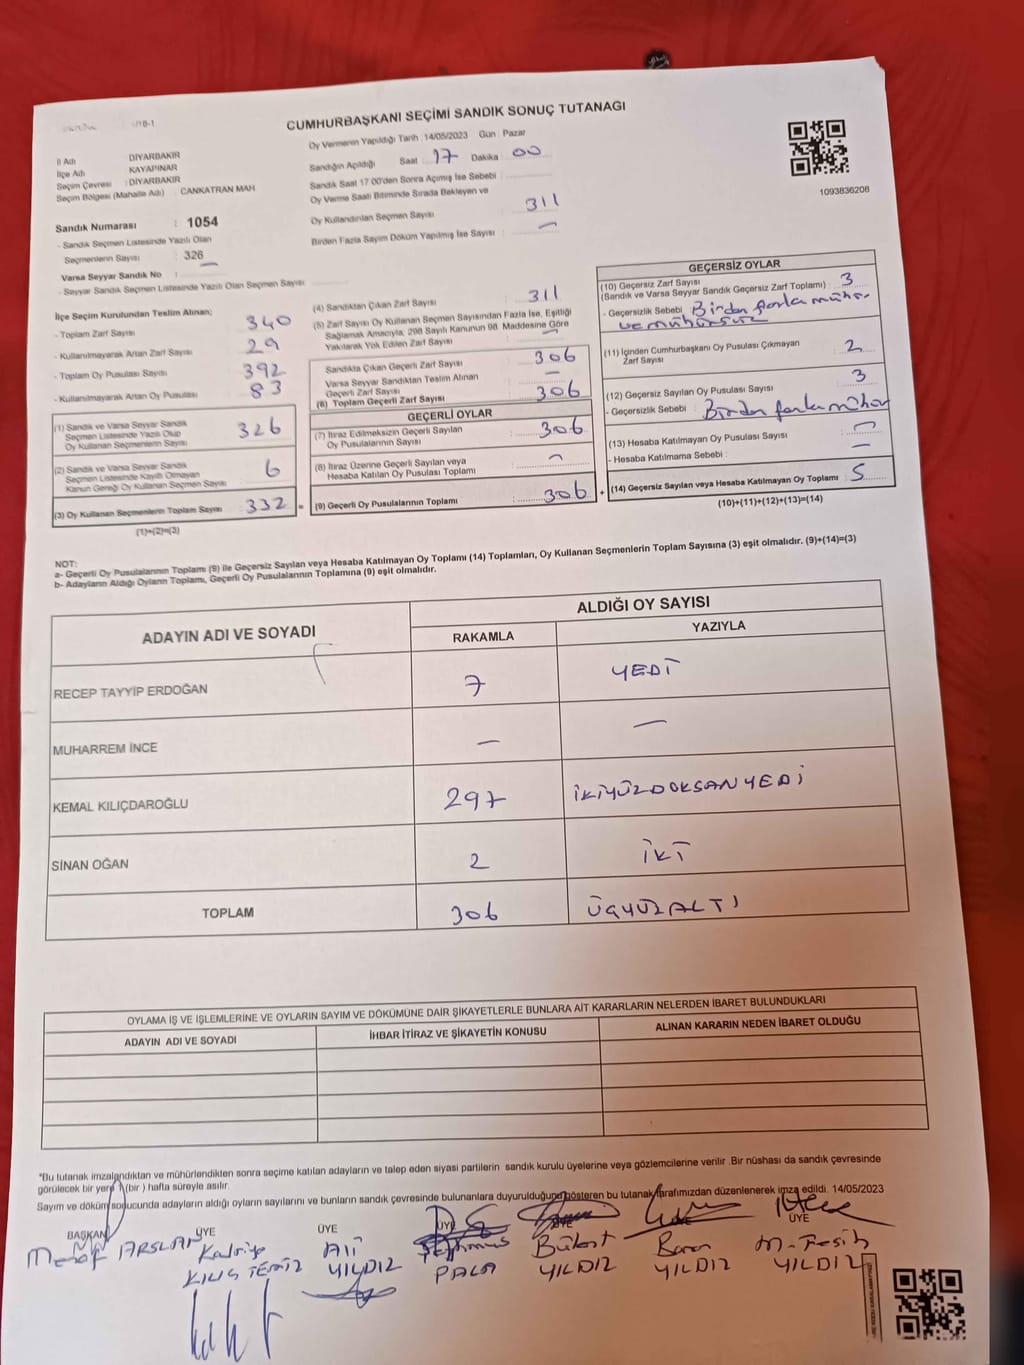 CUMHURBAŞKANI SEÇİMİ SANDIK SONUÇ TUTANAĞI
İl Adı DİYARBAKIR
İlçe Adı KAYAPINAR
Seçim Çevresi : DİYARBAKIR
Seçim Bölgesi (Mahalle Adı) : CANKATRAN MAH
Sandık Numarası : 1054
- Sandık Seçmen Listesinde Yazılı Olan
Seçmenlerin Sayısı : 326
Varsa Seyyar Sandık No :
- Seyyar Sandık Seçmen Listesinde Yazılı Olan Seçmen Sayısı :
Oy Vermenin Yapıldığı Tarih : 14/05/2023 Gün : Pazar
Sandığın Açıldığı Saat : 17 Dakika : 00
Sandık Saat 17:00'den Sonra Açımış İse Sebebi :
Oy Verme Saati Bitiminde Sırada Bekleyen ve
Oy Kullandırılan Seçmen Sayısı 311
Birden Fazla Sayım Döküm Yapılmış İse Sayısı : —
1093836208
İlçe Seçim Kurulundan Teslim Alınan;
- Toplam Zarf Sayısı 340
- Kullanılmayarak Artan Zarf Sayısı : 29
- Toplam Oy Pusulası Sayısı : 392
- Kullanılmayarak Artan Oy Pusulası : 83
(1) Sandık ve Varsa Seyyar Sandık
Seçmen Listesinde Yazılı Olup
Oy Kullanan Seçmenlerin Sayısı : 326
(2) Sandık ve Varsa Seyyar Sandık
Seçmen Listesinde Kayıtlı Olmayan
Kanun Gereği Oy Kullanan Seçmen Sayısı : 6
(3) Oy Kullanan Seçmenlerin Toplam Sayısı : 332 =
(1)+(2)=(3)
(4) Sandıktan Çıkan Zarf Sayısı : 311
(5) Zarf Sayısı Oy Kullanan Seçmen Sayısından Fazla İse, Eşitliği
Sağlamak Amacıyla, 298 Sayılı Kanunun 98. Maddesine Göre
Yakılarak Yok Edilen Zarf Sayısı : —
Sandıkta Çıkan Geçerli Zarf Sayısı : 306
Varsa Seyyar Sandıktan Teslim Alınan
Geçerli Zarf Sayısı : —
(6) Toplam Geçerli Zarf Sayısı : 306
GEÇERLİ OYLAR
(7) İtiraz Edilmeksizin Geçerli Sayılan
Oy Pusulalarının Sayısı : 306
(8) İtiraz Üzerine Geçerli Sayılan veya
Hesaba Katılan Oy Pusulası Toplamı : —
(9) Geçerli Oy Pusulalarının Toplamı : 306 +
GEÇERSİZ OYLAR
(10) Geçersiz Zarf Sayısı
(Sandık ve Varsa Seyyar Sandık Geçersiz Zarf Toplamı) : 3
- Geçersizlik Sebebi : Birden fazla mühür
ve mühürsüz
(11) İçinden Cumhurbaşkanı Oy Pusulası Çıkmayan
Zarf Sayısı : 2
(12) Geçersiz Sayılan Oy Pusulası Sayısı : 3
- Geçersizlik Sebebi : Birden fazla mühür
(13) Hesaba Katılmayan Oy Pusulası Sayısı : —
- Hesaba Katılmama Sebebi : —
(14) Geçersiz Sayılan veya Hesaba Katılmayan Oy Toplamı : 5
(10)+(11)+(12)+(13)=(14)
NOT:
a- Geçerli Oy Pusulalarının Toplamı (9) ile Geçersiz Sayılan veya Hesaba Katılmayan Oy Toplamı (14) Toplamları, Oy Kullanan Seçmenlerin Toplam Sayısına (3) eşit olmalıdır. (9)+(14)=(3)
b- Adayların Aldığı Oyların Toplamı, Geçerli Oy Pusulalarının Toplamına (9) eşit olmalıdır.
ADAYIN ADI VE SOYADI ALDIĞI OY SAYISI
RAKAMLA YAZIYLA
RECEP TAYYİP ERDOĞAN 7 YEDİ
MUHARREM İNCE — —
KEMAL KILIÇDAROĞLU 297 İKİYÜZDOKSANYEDİ
SİNAN OĞAN 2 İKİ
TOPLAM 306 ÜÇYÜZALTI
OYLAMA İŞ VE İŞLEMLERİNE VE OYLARIN SAYIM VE DÖKÜMÜNE DAİR ŞİKAYETLERLE BUNLARA AİT KARARLARIN NELERDEN İBARET BULUNDUKLARI
ADAYIN ADI VE SOYADI İHBAR İTİRAZ VE ŞİKAYETİN KONUSU ALINAN KARARIN NEDEN İBARET OLDUĞU
*Bu tutanak imzalandıktan ve mühürlendikten sonra seçime katılan adayların ve talep eden siyasi partilerin sandık kurulu üyelerine veya gözlemcilerine verilir .Bir nüshası da sandık çevresinde
görülecek bir yere 1 (bir ) hafta süreyle asılır.
Sayım ve döküm sonucunda adayların aldığı oyların sayılarını ve bunların sandık çevresinde bulunanlara duyurulduğunu gösteren bu tutanak tarafımızdan düzenlenerek imza edildi. 14/05/2023
BAŞKAN ÜYE ÜYE ÜYE ÜYE ÜYE
ARSLAN Kadriye Ali Bülent Baran M. Fesih
KILIÇ TEMİZ YILDIZ PALA YILDIZ YILDIZ YILDIZ